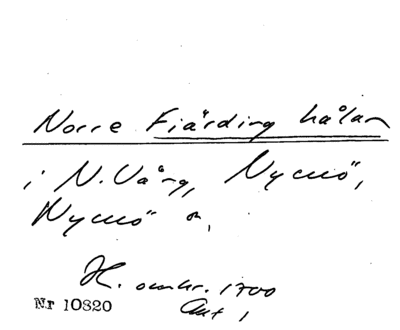 Norre Fiärding hålan
i N. Vång, Nymö,
Nymö sn,
H. omkr. 1700
Akt 1
Nr 10820